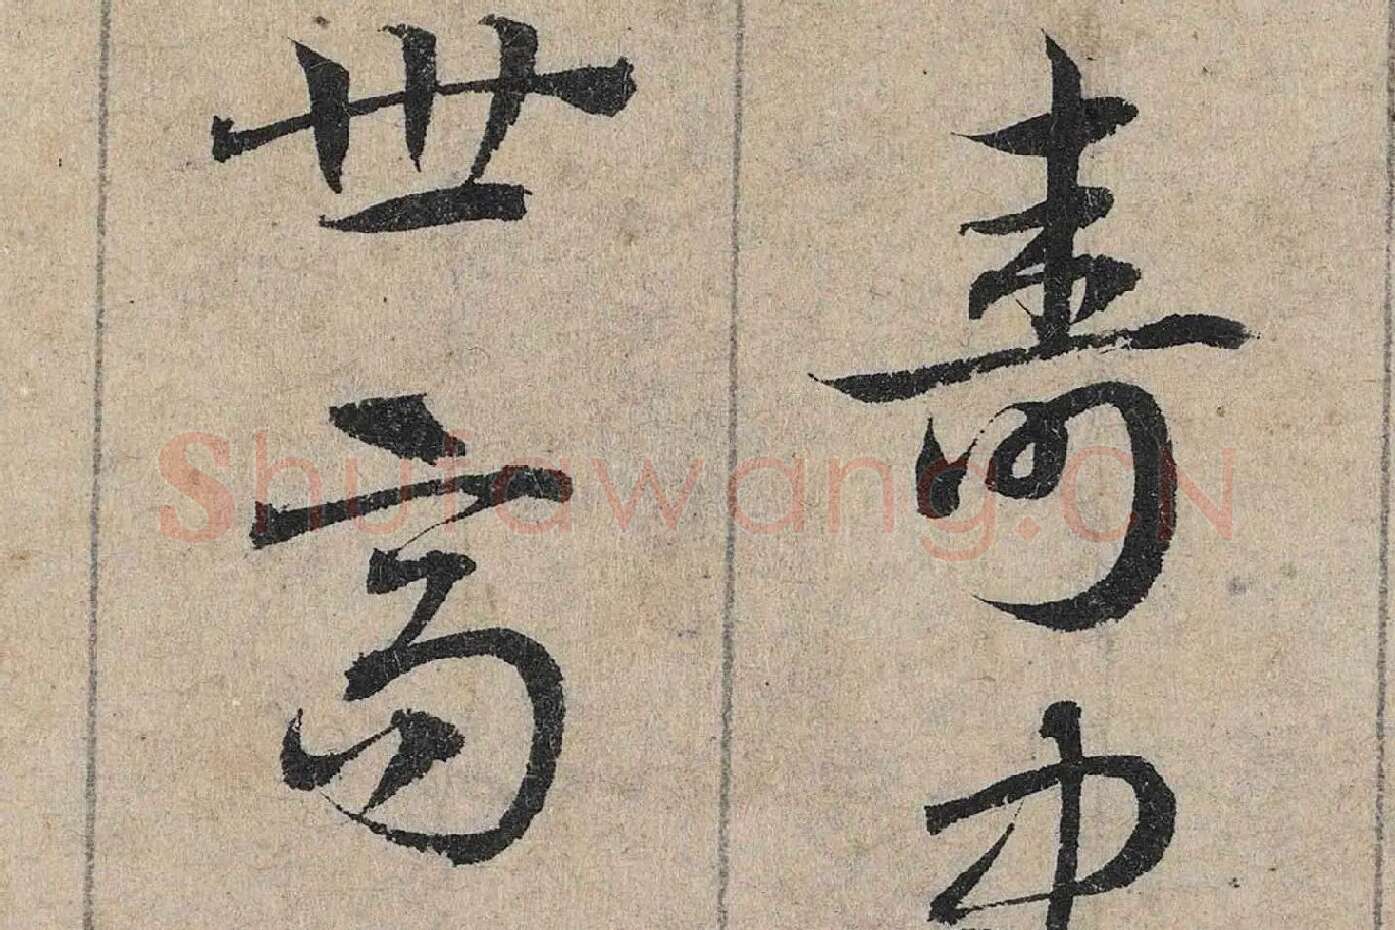 壽
世高
Shufawang.CN